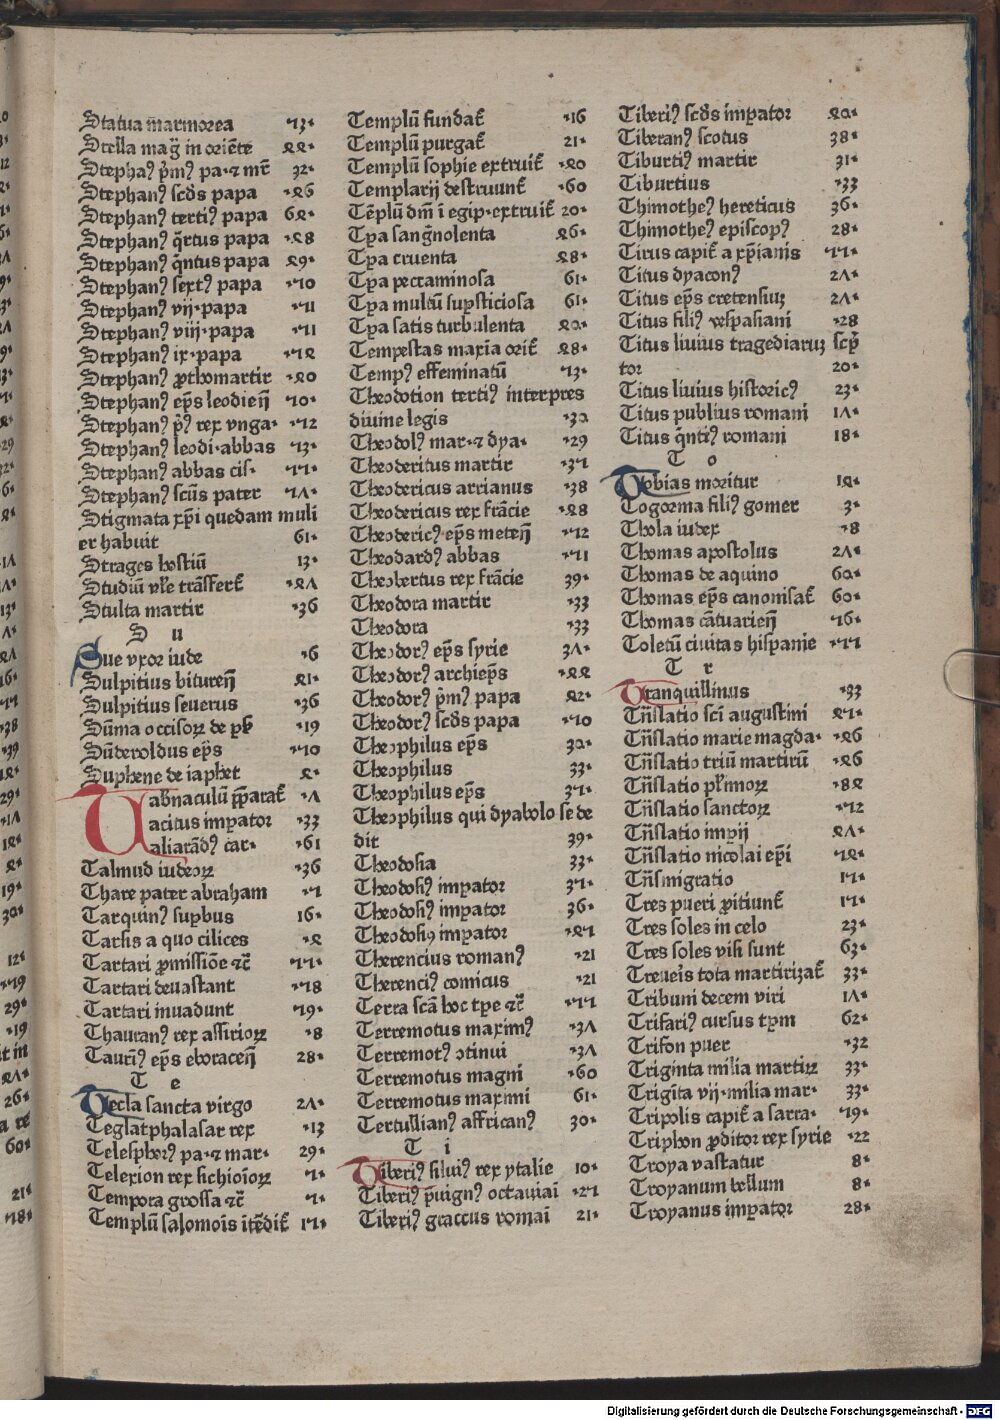 Statua marmorea ·73·
Stella mag̃ in oriẽte 44·
Stephaꝰ p̃mꝰ pa·⁊ mr̃ 32·
Stephanꝰ scd̃s papa ·46
Stephanꝰ tertiꝰ papa 64·
Stephanꝰ q̃rtus papa ·48
Stephanꝰ q̃ntus papa 49·
Stephanꝰ sextꝰ papa ·70
Stephanꝰ vij·papa ·71
Stephanꝰ viij·papa ·71
Stephanꝰ ix·papa ·74
Stephanꝰ ꝓthomartir ·40
Stephanꝰ ep̃s leodieñ 70·
Stephanꝰ p̃ꝰ rex vnga· ·72
Stephanꝰ leodi·abbas 73·
Stephanꝰ abbas cis· 77·
Stephanꝰ scũs pater 75·
Stigmata xp̃i quedam muli
er habuit 61·
Strages hostiũ 13·
Studiũ vl̃e trãsfert̃ ·45
Stulta martir ·36
S u
Sue vxor iude ·6
Sulpitius bitureñ 41·
Sulpitius seuerus ·36
Sũma occisoꝝ de pł ·19
Sũderoldus ep̃s ·70
Suphene de iaphet 4·
Tabñaculũ p̃parat̃ ·5
Tacitus imꝑator ·33
Taliarãdꝰ car· ·61
Talmud iudeoꝝ ·36
Thare pater abraham ·7
Tarquinꝰ suꝑbus 16·
Tarsis a quo cilices ·4
Tartari ꝓmissiõe ⁊c̃ 77·
Tartari deuastant ·78
Tartari inuadunt 79·
Thauranꝰ rex assirioꝝ ·8
Taurĩꝰ ep̃s eboraceñ 28·
T e
Tecla sancta virgo 25·
Teglatphalasar rex ·13
Telesphorꝰ pa·⁊ mar· 29·
Telexion rex sichioĩoꝝ 7·
Tempora grossa ⁊c̃ 7·
Templũ salomoĩs ĩcẽdit̃ 17·
Templũ fundat̃ ·16
Templũ purgat̃ 21·
Templũ sophie extruit̃ ·40
Templarij destruunt̃ ·60
Tẽplũ dm̃ ĩ egip·extruit̃ 20·
Tꝑa sang̃nolenta 46·
Tꝑa cruenta 48·
Tꝑa peccaminosa 61·
Tꝑa multũ suꝑsticiosa 61·
Tꝑa satis turbulenta 40·
Tempestas maxĩa orit̃ 48·
Tempꝰ effeminatũ 73·
Theodotion tertiꝰ interpres
diuine legis ·30
Theodolꝰ mar·⁊ dya· ·29
Theoderitus martir ·37
Theodericus arrianus ·38
Theodericus rex frãcie ·48
Theodericꝰ ep̃s meteñ ·72
Theodardꝰ abbas ·71
Theobertus rex frãcie 39·
Theodora martir ·33
Theodora ·33
Theodorꝰ ep̃s syrie 35·
Theodorꝰ archiep̃s ·44
Theodorꝰ p̃mꝰ papa 42·
Theodorꝰ scd̃s papa ·70
Theophilus ep̃s 30·
Theophilus 33·
Theophilus ep̃s 37·
Theophilus qui dyabolo se de
dit 39·
Theodosia 33·
Theodosiꝰ imꝑator 37·
Theodosiꝰ imꝑator 36·
Theodosiꝰ imꝑator ·47
Therencius romanꝰ ·21
Therenciꝰ comicus ·21
Terra scã hoc tꝑe ⁊c̃ ·77
Terremotus maximꝰ ·35
Terremotꝰ ↄtinui ·35
Terremotus magni ·60
Terremotus maximi 61·
Tertullianꝰ affricanꝰ 30·
T i
Tiberiꝰ siluiꝰ rex ytalie 10·
Tiberiꝰ p̃uignꝰ octauiaĩ ·27
Tiberiꝰ graccus romaĩ 21·
Tiberiꝰ scd̃s imꝑator 40·
Tiberanꝰ scotus 38·
Tiburtiꝰ martir 31·
Tiburtius ·33
Thimotheꝰ hereticus 36·
Thimotheꝰ episcopꝰ 28·
Tirus capit̃ a xp̃ianis 77·
Titus dyaconꝰ 25·
Titus ep̃s cretensiuꝫ 25·
Titus filiꝰ vespasiani ·28
Titus liuius tragediaruꝫ scp̃
tor 20·
Titus liuius historicꝰ 23·
Titus publius romani 15·
Titus q̃ntiꝰ romani 18·
T o
Tobias moritur 14·
Togorma filiꝰ gomer 3·
Thola iudex ·8
Thomas apostolus 25·
Thomas de aquino 60·
Thomas ep̃s canonisat̃ 60·
Thomas cãtuarieñ ·76·
Toletũ ciuitas hispanie ·77
T r
Tranquillinus ·33
Trñslatio sci̇ augustini 47·
Trñslatio marie magda· ·46
Trñslatio triũ martirũ ·46
Trñslatio pl̃rimoꝝ ·84
Trñslatio sanctoꝝ ·72
Trñslatio impij 45·
Trñslatio nicolai ep̃i ·74·
Trñsmigratio 17·
Tres pueri ꝓitiunt̃ 17·
Tres soles in celo 23·
Tres soles visi sunt 63·
Treueĩs tota martirizat̃ 33·
Tribuni decem viri 15·
Trifariꝰ cursus tꝑm 62·
Trifon puer ·32
Triginta milia martiꝝ 33·
Trigĩta vij·milia mar· 33·
Tripolis capit̃ a sarra· ·79·
Triphon ꝓditor rex syrie ·22
Troya vastatur 8·
Troyanum bellum 8·
Troyanus imꝑator 28·
Digitalisierung gefördert durch die Deutsche Forschungsgemeinschaft · DFG